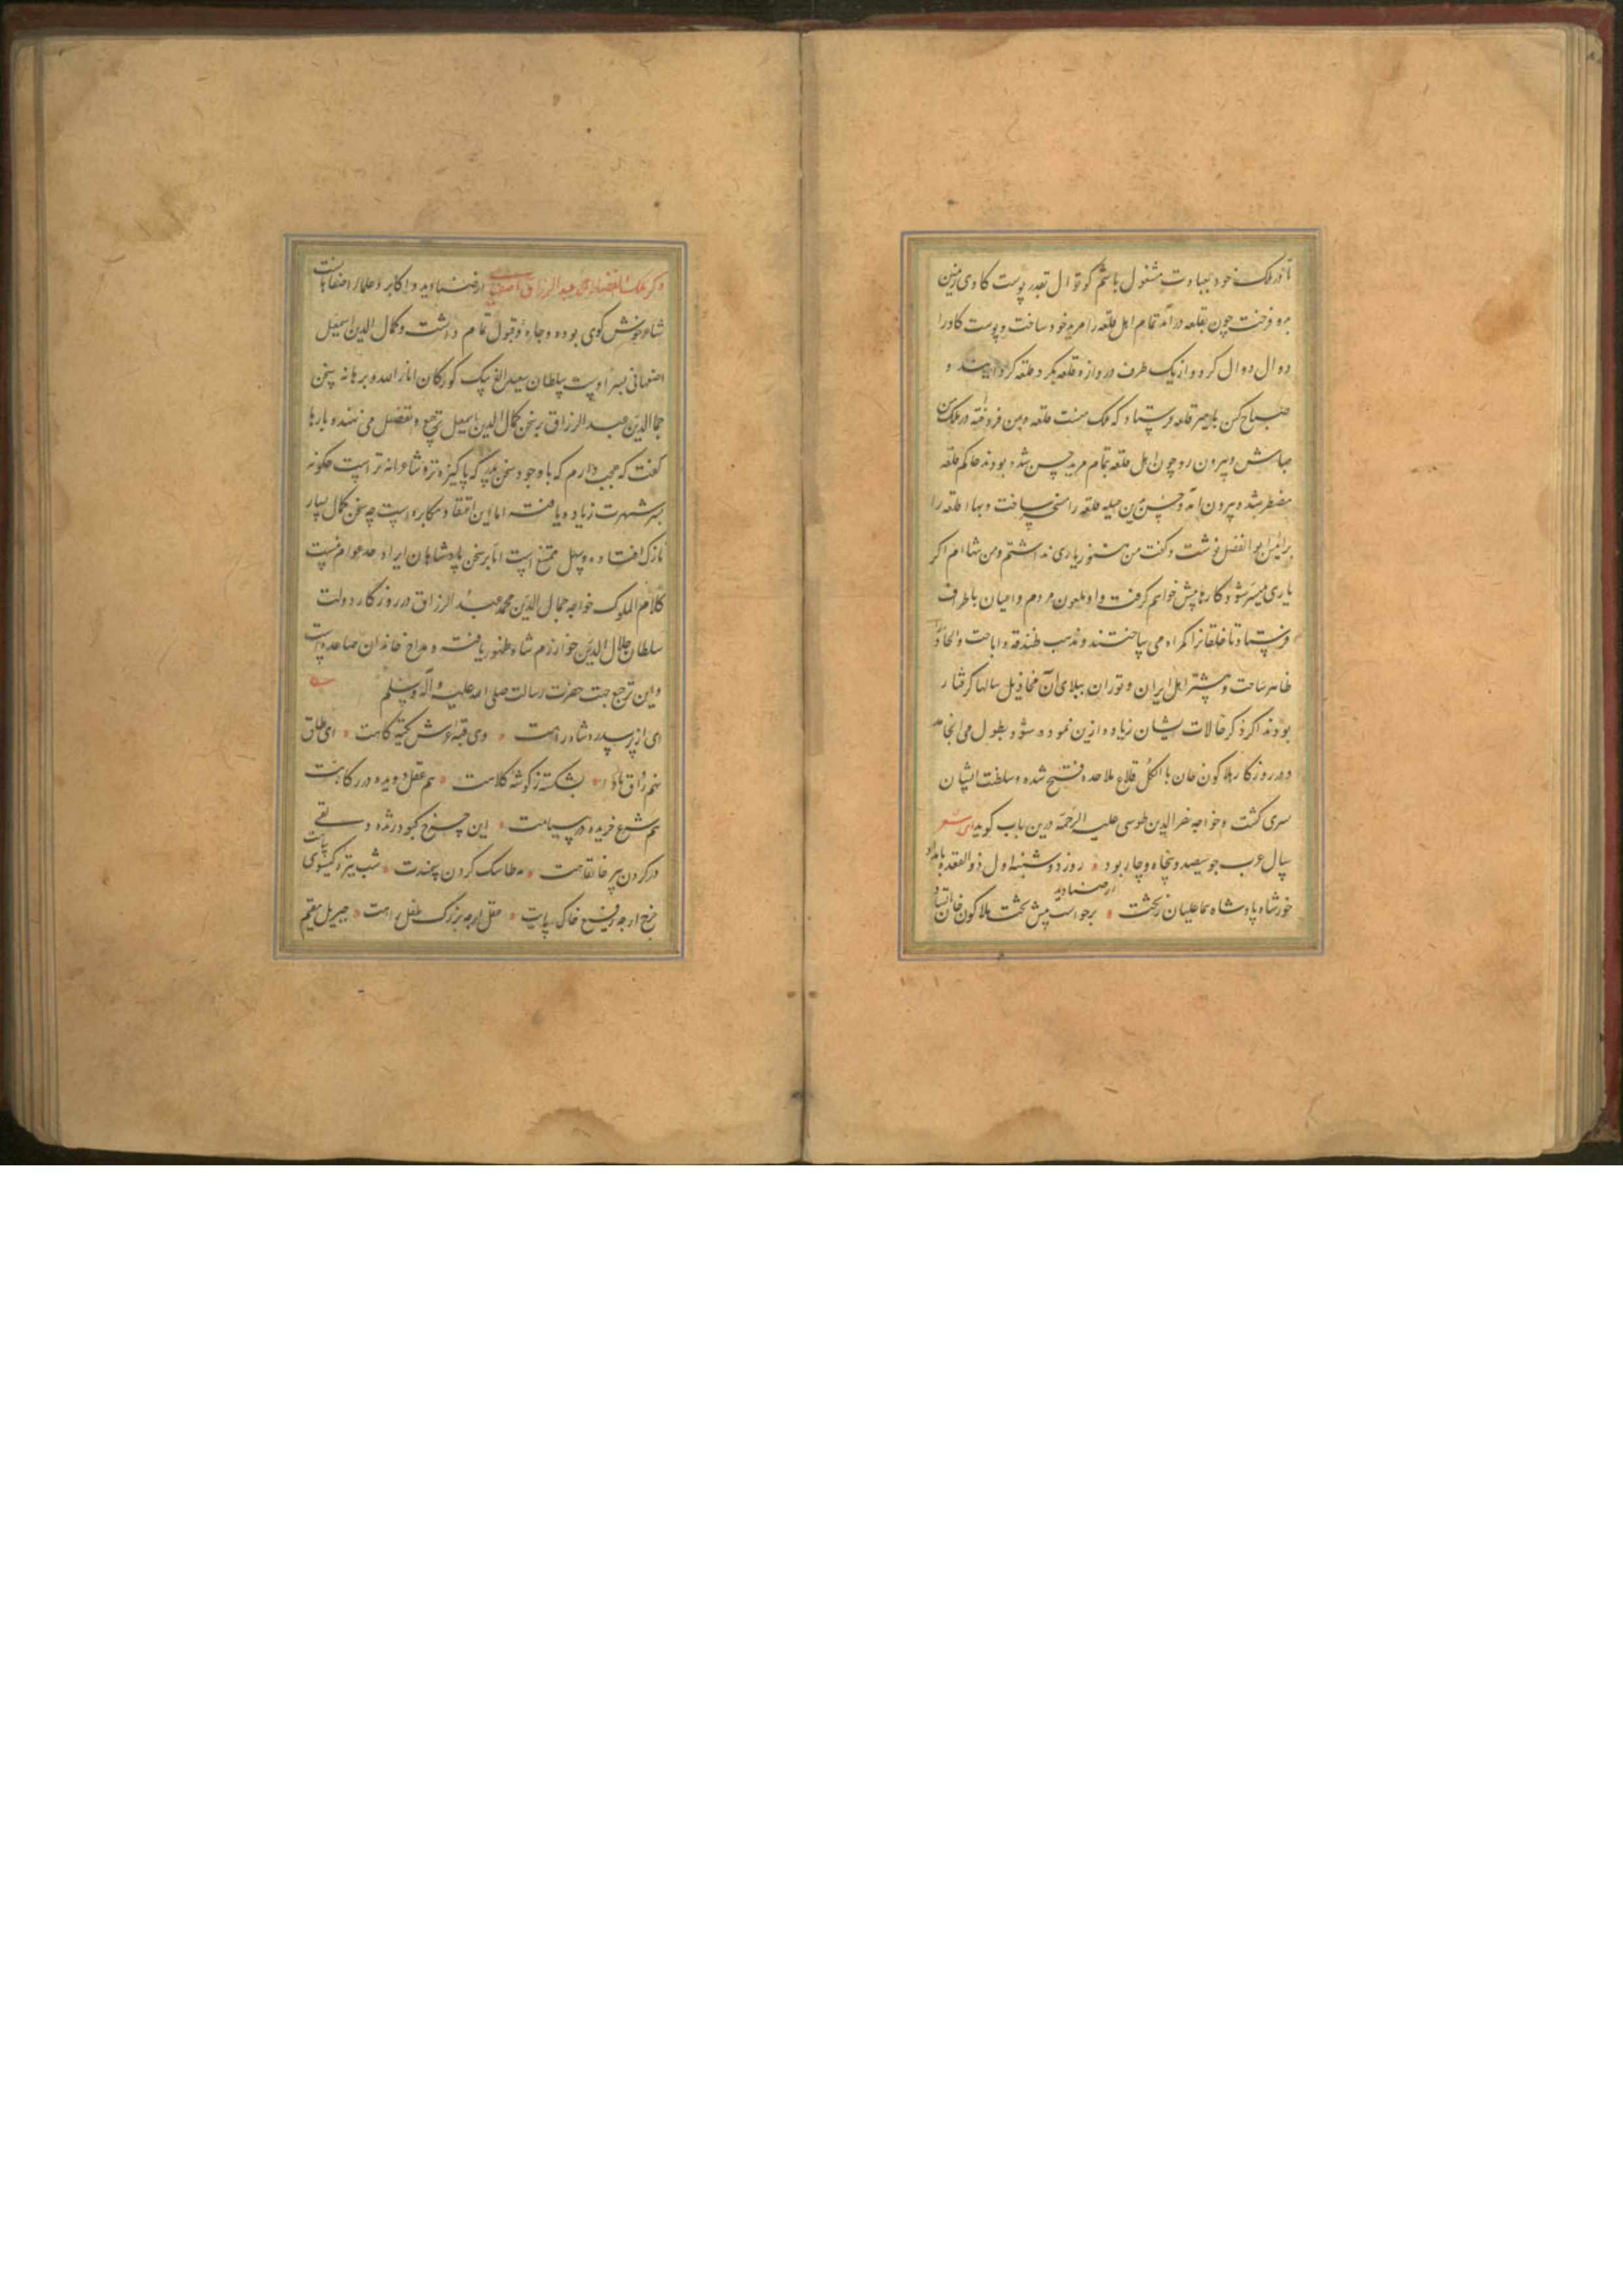 تا در ملک خود بعبادت مشغول باشم کوتوال بقدر پوست گاوی زمین
بدو فروخت چون بقلعه درآمد تمام اهل قلعه را مرید خود ساخت و پوست گاو را
دوال دوال کرد و از یک طرف دروازه قلعه بگرد قلعه کردانید و
صباح کس بامیر قلعه فرستاد که ملک منست قلعه و بمن فروخته در ملک من
مباش و بیرون رو چون اهل قلعه تمام مرید حسن شده بودند حاکم قلعه
مضطر شد و بیرون آمد و حسن بدین حیله قلعه را مسخر ساخت و بهاء قلعه را
برئیس ابو الفضل نوشت و گفت من هنوز یاری نداشتم و من تنها ام اگر
یاری میسر شود کارها پیش خواهم گرفت و او ملعون مردم و داعیان باطراف
فرستاد تا خلقان را گمراه می ساختند و مذهب زندقه و اباحت و الحاد را
ظاهر ساخت و بیشتر اهل ایران و توران ببلای آن مخاذیل سالها گرفتار
بودند اگر ذکر حالات ایشان زیاده ازین نموده شود بطول می انجامد
و در روزگار هلاکون خان بالکل قلاع ملاحده فتح شده و سلطنت ایشان
سپری گشت و خواجه نصر الدین طوسی علیه الرحمة درین باب گوید شعر
سال عرب چو ششصد و پنجاه و چار بود روز دوشنبه اول ذو القعده بامداد
خورشاه پادشاه سماعیلیان ز تخت برخواست پیش تخت هلاکون خان ایستاد
ذکر ملک الفضلا محمد عبد الرزاق اصفهانی از صنادید و اکابر و علماء اصفهانست
شاعر خوش گوی بوده و جاه و قبول تمام داشت و کمال الدین اسمعیل
اصفهانی پسر اوست سلطان سعید الغ بیک کورکان انار الله و برهانه سخن
جمال الدین عبد الرزاق بر سخن کمال الدین اسمعیل ترجیح و تفضیل می نهند و بارها
گفت که عجب دارم که با وجود سخن پدر که پاکیزه تر و شاعرانه تر است چگونه
پسر شهرت زیاده یافت اما این اعتقاد مکابره است چه سخن کمال بسیار
نازک افتاده و سهل ممتنع است اما بر سخن پادشاهان ایراد حد عوام نیست
کلام الملوک خواجه جمال الدین محمد عبد الرزاق در روزگار دولت
سلطان جلال الدین خوارزم شاه ظهور یافت و مداح خاندان صاعدیه است
و این ترجیع جهت حضرت رسالت صلی الله علیه و آله وسلم
ای از بر سدره شاه راهت وی قبه عرش تکیه گاهت ای طاق
نهم رواق بالا بشکسته ز گوشه کلاهت هم عقل دویده در رکابت
هم شرع خزیده در پناهت این چرخ کبود ژنده دلقی
در گردن پیر خانقاهت مه طاسک گردن سمندت شب طره گیسوی سیاهت
چرخ ارچه رفیع خاک پایت عقل ارچه بزرگ طفل راهت جبریل مقیم